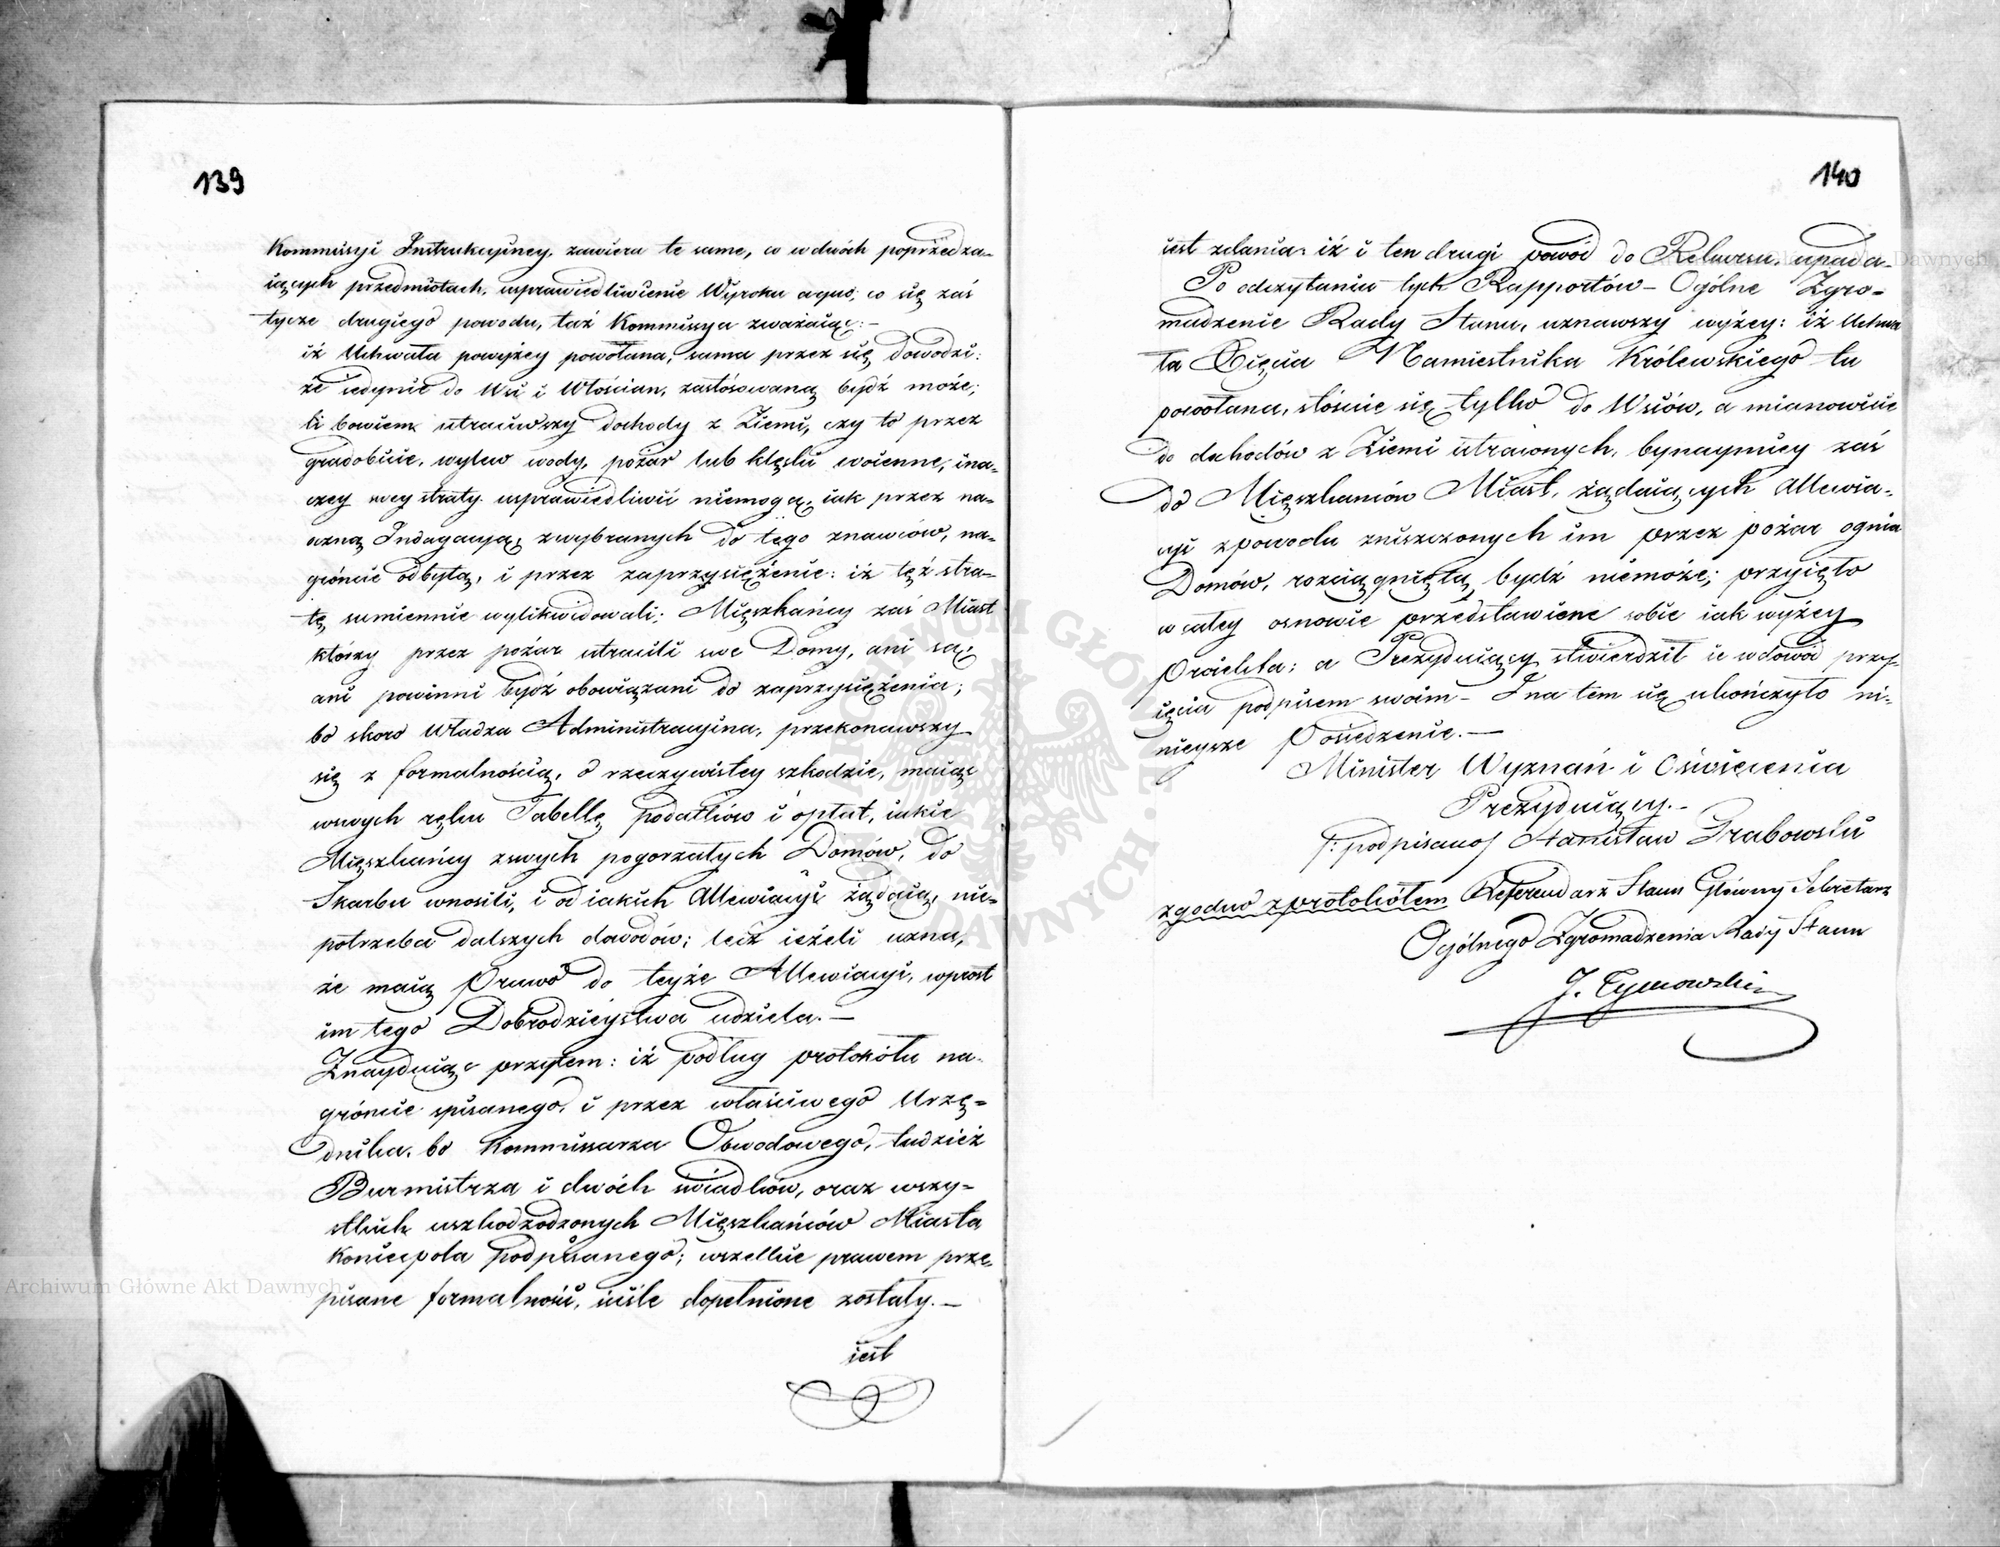 139
Kommissyi Instrukcyiney, zawiera te same, co w dwóch poprzedza-
iących przedmiotach, usprawiedliwienie Wyroku a quo; co się zaś
tycze drugiego powodu, taż Kommissya zważaiąc:-
iż Uchwała powyżey powołana, sama przez się dowodzi:
że iedynie do Wsi i Włościan, zastósowaną bydź może;
Ci bowiem utraciwszy dochody z Ziemi, czy to przez
gradobicie, wylew wody, pożar lub klęski woienne, ina-
czey swey straty usprawiedliwić niemogą, iak przez na-
oczną Indagacyią, z wybranych do tego znawców, na-
gróncie odbytą, i przez zaprzysiężenie: iż tęż stra-
tę sumiennie wylikwidowali; Mięszkańcy zaś Miast
którzy przez pożar utracili swe Domy, ani są,
ani powinni bydź obowiązani do zaprzysiężenia;
bo skoro Władza Administracyina, przekonawszy
się z formalnością, o rzeczywistey szkodzie, maiąc
w swych ręku Tabellę podatków i opłat, iakie
Mięszkańcy z swych pogorzałych Domów, do
Skarbu wnosili, i od iakich Allewiacyi żądaią, nie-
potrzeba dalszych dowodów; lecz ieżeli uzna,
że maią Prawo do teyże Allewiacyi, wprost
im tego Dobrodzieystwa udziela.-
Znayduiąc przytem: iż podług protokółu na-
gróncie spisanego, i przez właściwego Urzę-
dnika, bo Kommissarza Obwodowego, tudzież
Burmistrza i dwóch świadków, oraz wszy-
stkich uszkodzodzonych Mięszkańców Miasta
Koniecpola podpisanego; wszelkie prawem prze-
pisane formalności, iściśle dopełnione zostały.-
iest
140
iest zdania: iż i ten drugi powód do Rekursu, upada-
Po odczytaniu tych Rapportów- Ogólne Zgro-
madzenie Rady Stanu, uznawszy wyżey: iż Uchwa
ła Xięcia Namiestnika Królewskiego tu
powołana, stósuie się tylko do Wsiów, a mianowicie
do dochodów z Ziemi utraconych, bynaymniey zaś
do Mięszkańców Miast, żądaiących Allewia-
cyi z powodu zniszczonych im przez pożar ognia
Domów, rozciągniętą bydź niemoże; przyięło
w całey osnowie przedstawione sobie iak wyżey
Proiekta; a Prezyduiący stwierdził ie w dowód przy-
ięcia podpisem swoim- I na tem się ukończyło ni-
nieysze Posiedzenie.-
Minister Wyznań i Oświecenia
Prezyduiący.-
/:podpisano/ Stanisław Grabowski
zgodno z protokółem Referendarz Stanu Główny Sekretarz
Ogólnego Zgromadzenia Rady Stanu
J. Tymowski
Archiwum Główne Akt Dawnych